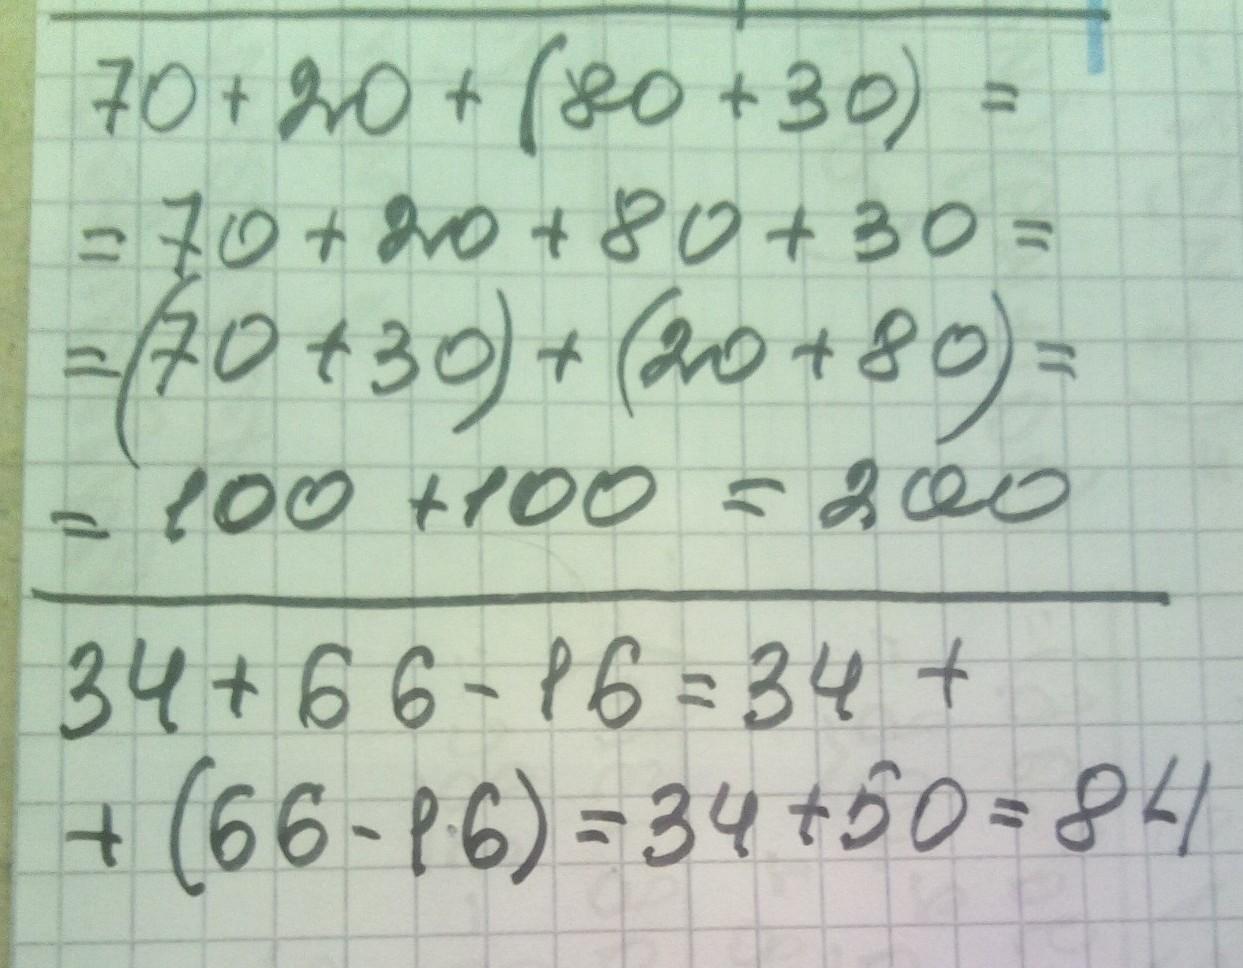 70 + 20 + (80 + 30) =
= 70 + 20 + 80 + 30 =
= (70 + 30) + (20 + 80) =
= 100 + 100 = 200
34 + 66 - 16 = 34 +
+ (66 - 16) = 34 + 50 = 84